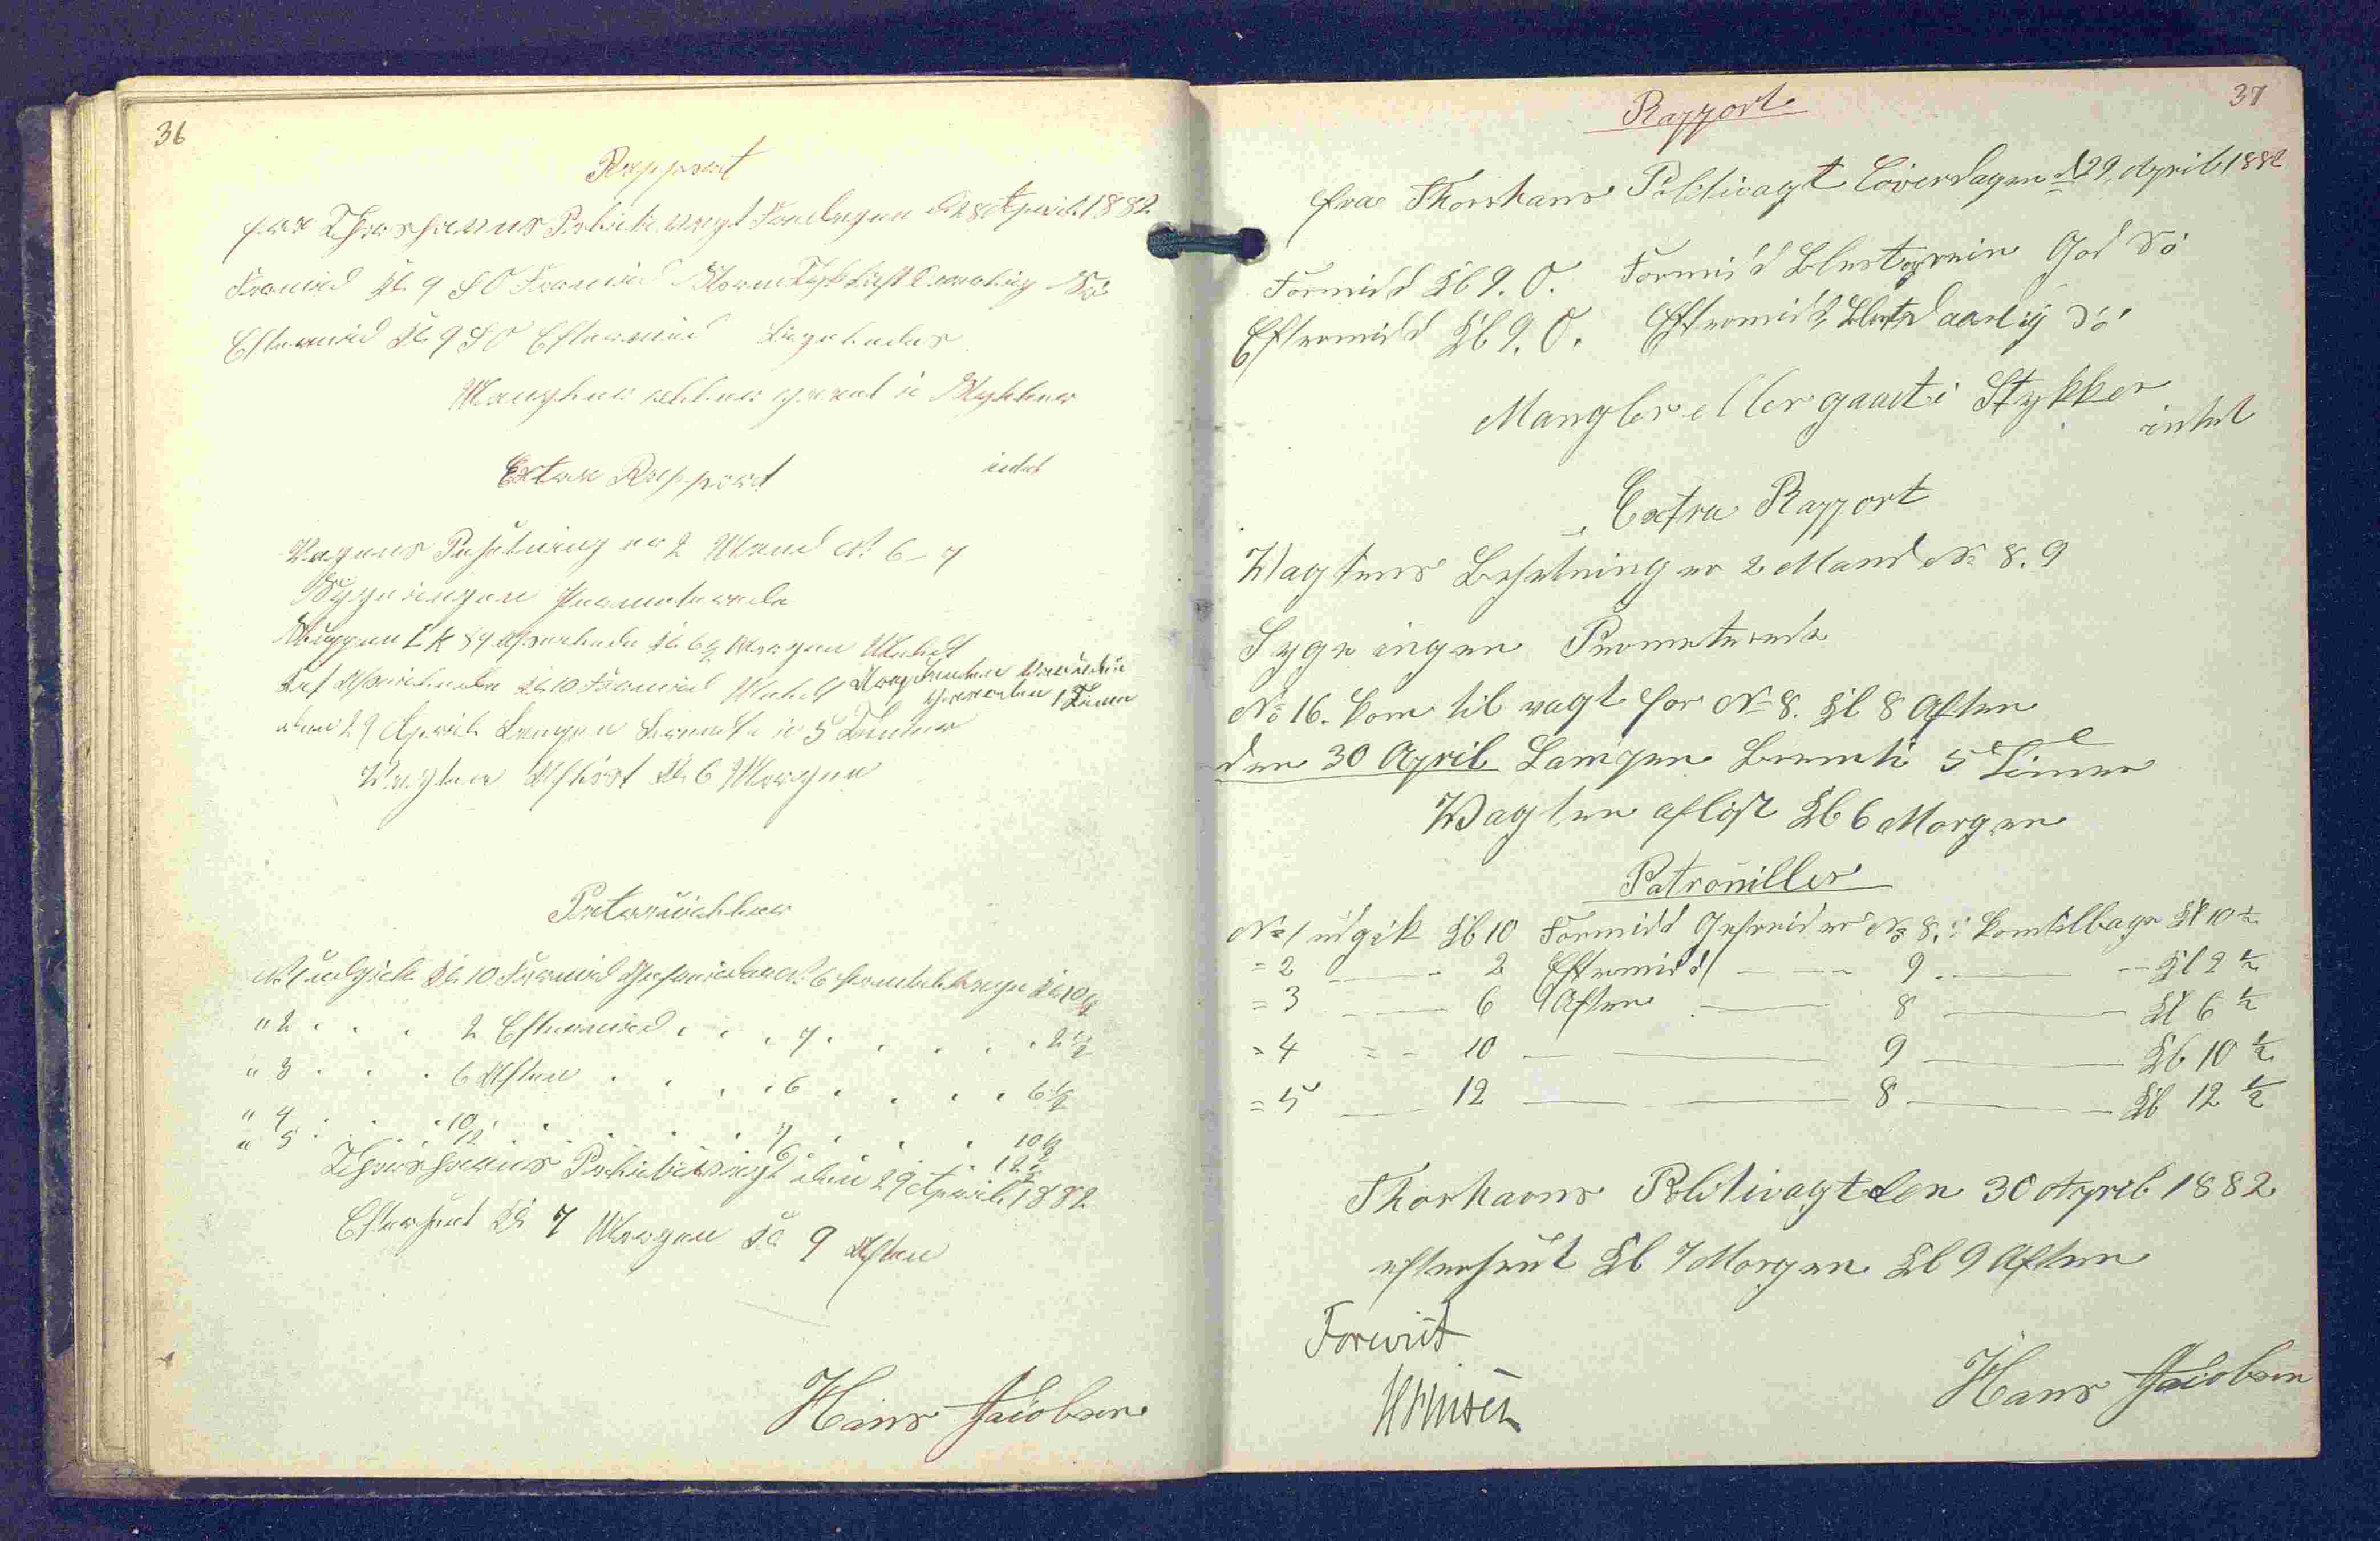 36
Rapport
fra Thorshavns Politivagt Fredagen d. 28 April 1882
Formid Kl. 9 SO Formid Storm Tyk Luft Daarlig Sø
Eftermid Kl 9 SO Eftermid Ligeledes
Mangler eller gaaet i Stykker
intet
Extra Rapport
Vagens Besetning er 2 Mand N. 6-7
Syge ingen Permeterede
Sluppen T.K 59 Kl 6½ Morgen
Kl. 10 Formid
den 29 April Lampen brendte i 5 Timer
Vagten Afløst Kl. 6 Morgen
Patrouiller
N. 1 udgick Kl. 10 Formid N. 6 kom tilbage Kl. 10½
" 2 . . . 2 Eftermid . . . 7 . . . . . 2½
" 3 . . . 6 Aften . . . . 6 . . . . 6½
" 4 . . . . 10 . . . . . 7 . . . . 10½
" 5 . . . . 12 . . . . . 6 . . . . 12½
Thorshavns Politivagt den 29 April 1882
Efterseet Kl 7 Morgen Kl 9 Aften
Hans Jacobsen
37
Rapport
fra Thorshavns Politivagt Löverdagen d 29. April 1882
Formidd Kl 9. O. Formidd Blest grein God Sö
Eftermidd Kl 9. O. Eftermidd, Blest Daarlig Sö
Mangler eller gaaet i Stykker
intet
Extra Rapport
Wagtens Besetning er 2 Mand No 8. 9
Syge ingen Permeterede
No 16. kom til vagt for No 8. Kl 8 Aften
den 30 April Lampen brendte 5 Timer
Wagten aflöst Kl 6 Morgen
Patrouiller
No 1 udgik Kl 10 Formidd No 8. kom tilbage Kl 10 ½
= 2 — 2 Eftermidd — 9 — Kl 2 ½
= 3 — 6 Aften — 8 — Kl 6 ½
= 4 = - 10 — 9 — Kl 10 ½
= 5 — 12 — 8 — Kl 12 ½
Thorhavns Politivagt den 30 April 1882
efterseet Kl 7 Morgen Kl 9 Aften
Forevist
Hans Jacobsen